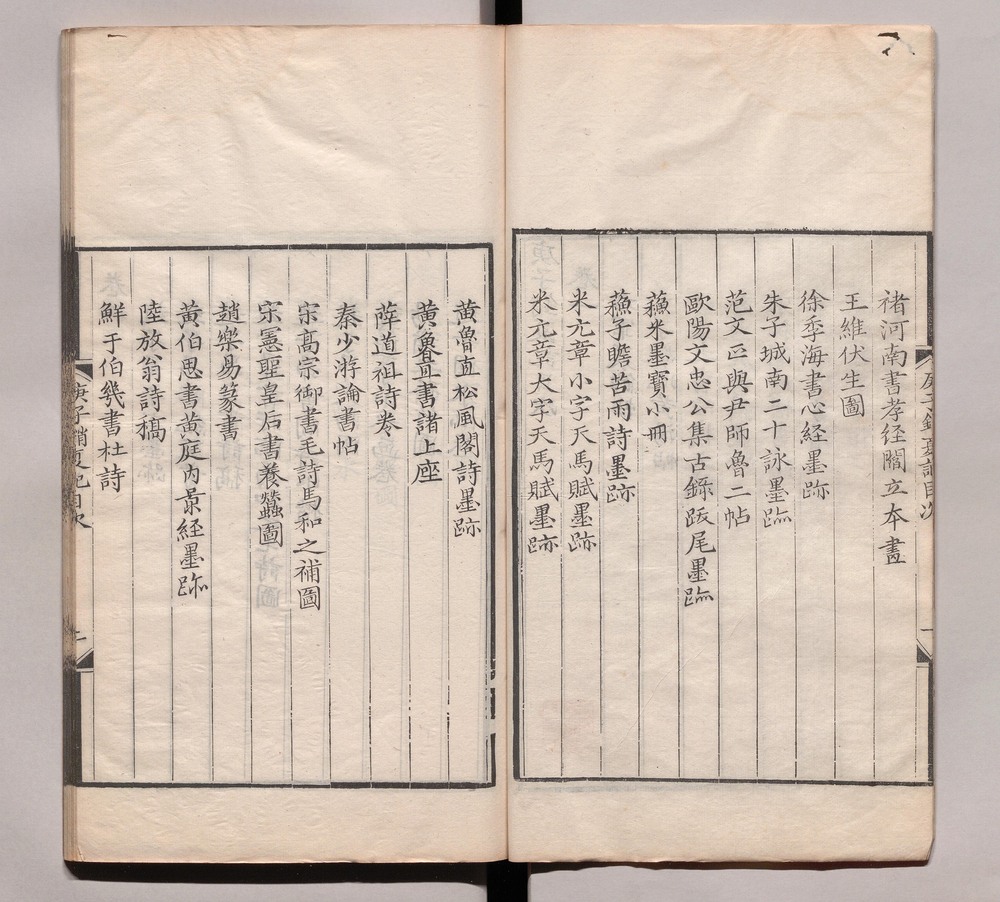 褚河南書孝経閻立本畫
王維伏生圖
徐季海書心経墨跡
朱子城南二十詠墨跡
范文正與尹師魯二帖
歐陽文忠公集古錄䟦尾墨跡
蘓米墨寶小冊
蘓子瞻苦雨詩墨跡
米元章小字天馬賦墨跡
米元章大字天馬賦墨跡
黄魯直松風閣詩墨跡
黄魯直書諸上座
薛道祖詩卷
秦少游論書帖
宋髙宗御書毛詩馬和之補圖
宋憲聖皇后書養蠶圖
趙樂易篆書
黄伯思書黄庭内景経墨跡
陸放翁詩稿
鮮于伯幾書杜詩
庚子銷夏記目次